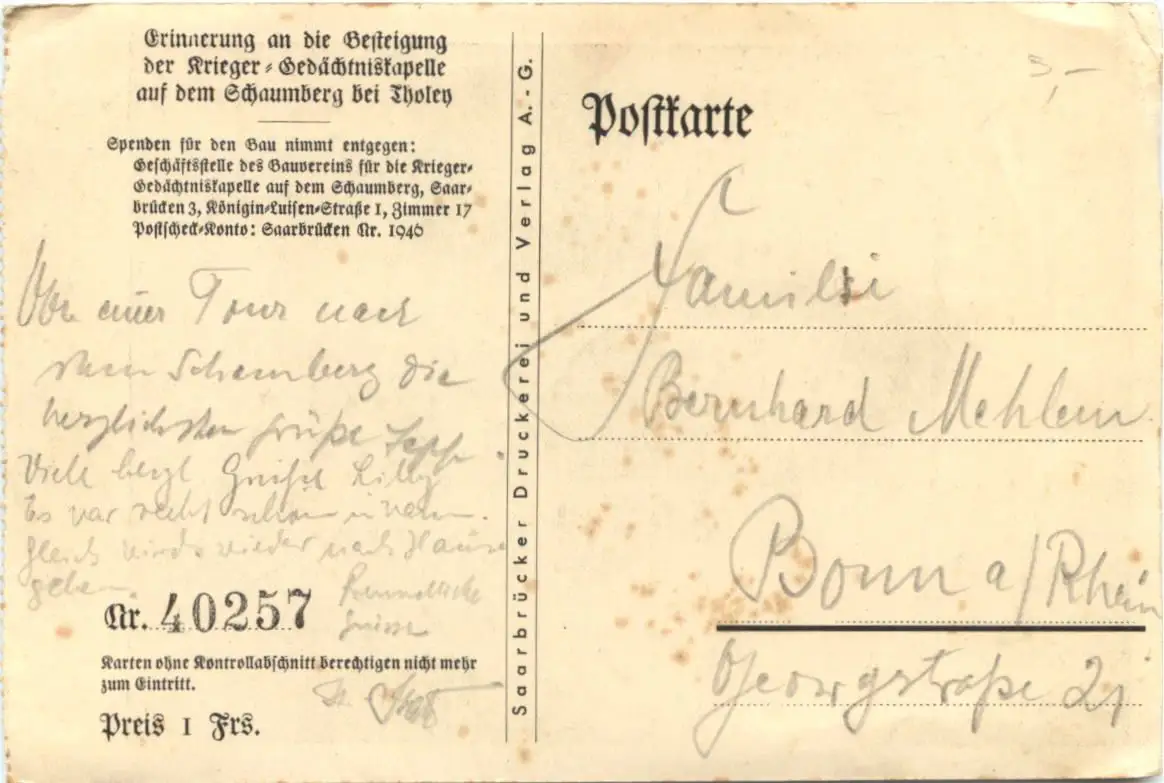 Erinnerung an die Besteigung
der Krieger-Gedächtniskapelle
auf dem Schaumberg bei Tholey
Spenden für den Bau nimmt entgegen:
Geschäftsstelle des Bauvereins für die Krieger-
Gedächtniskapelle auf dem Schaumberg, Saar-
brücken 3, Königin-Luisen-Straße 1, Zimmer 17
Postscheck-Konto: Saarbrücken Nr. 1946
einer Tour nach
dem Schaumberg die
herzlichsten Grüße
Viele herzl Grüße Lilly
Es war recht schön
Gleich wirds wieder nach Hause
gehen.
Nr. 40257
Karten ohne Kontrollabschnitt berechtigen nicht mehr
zum Eintritt.
Preis 1 Frs.
Saarbrücker Druckerei und Verlag A.-G.
3,–
Postkarte
Familie
Bernhard Mehlem
Bonn a/Rhein
Georgstraße 21